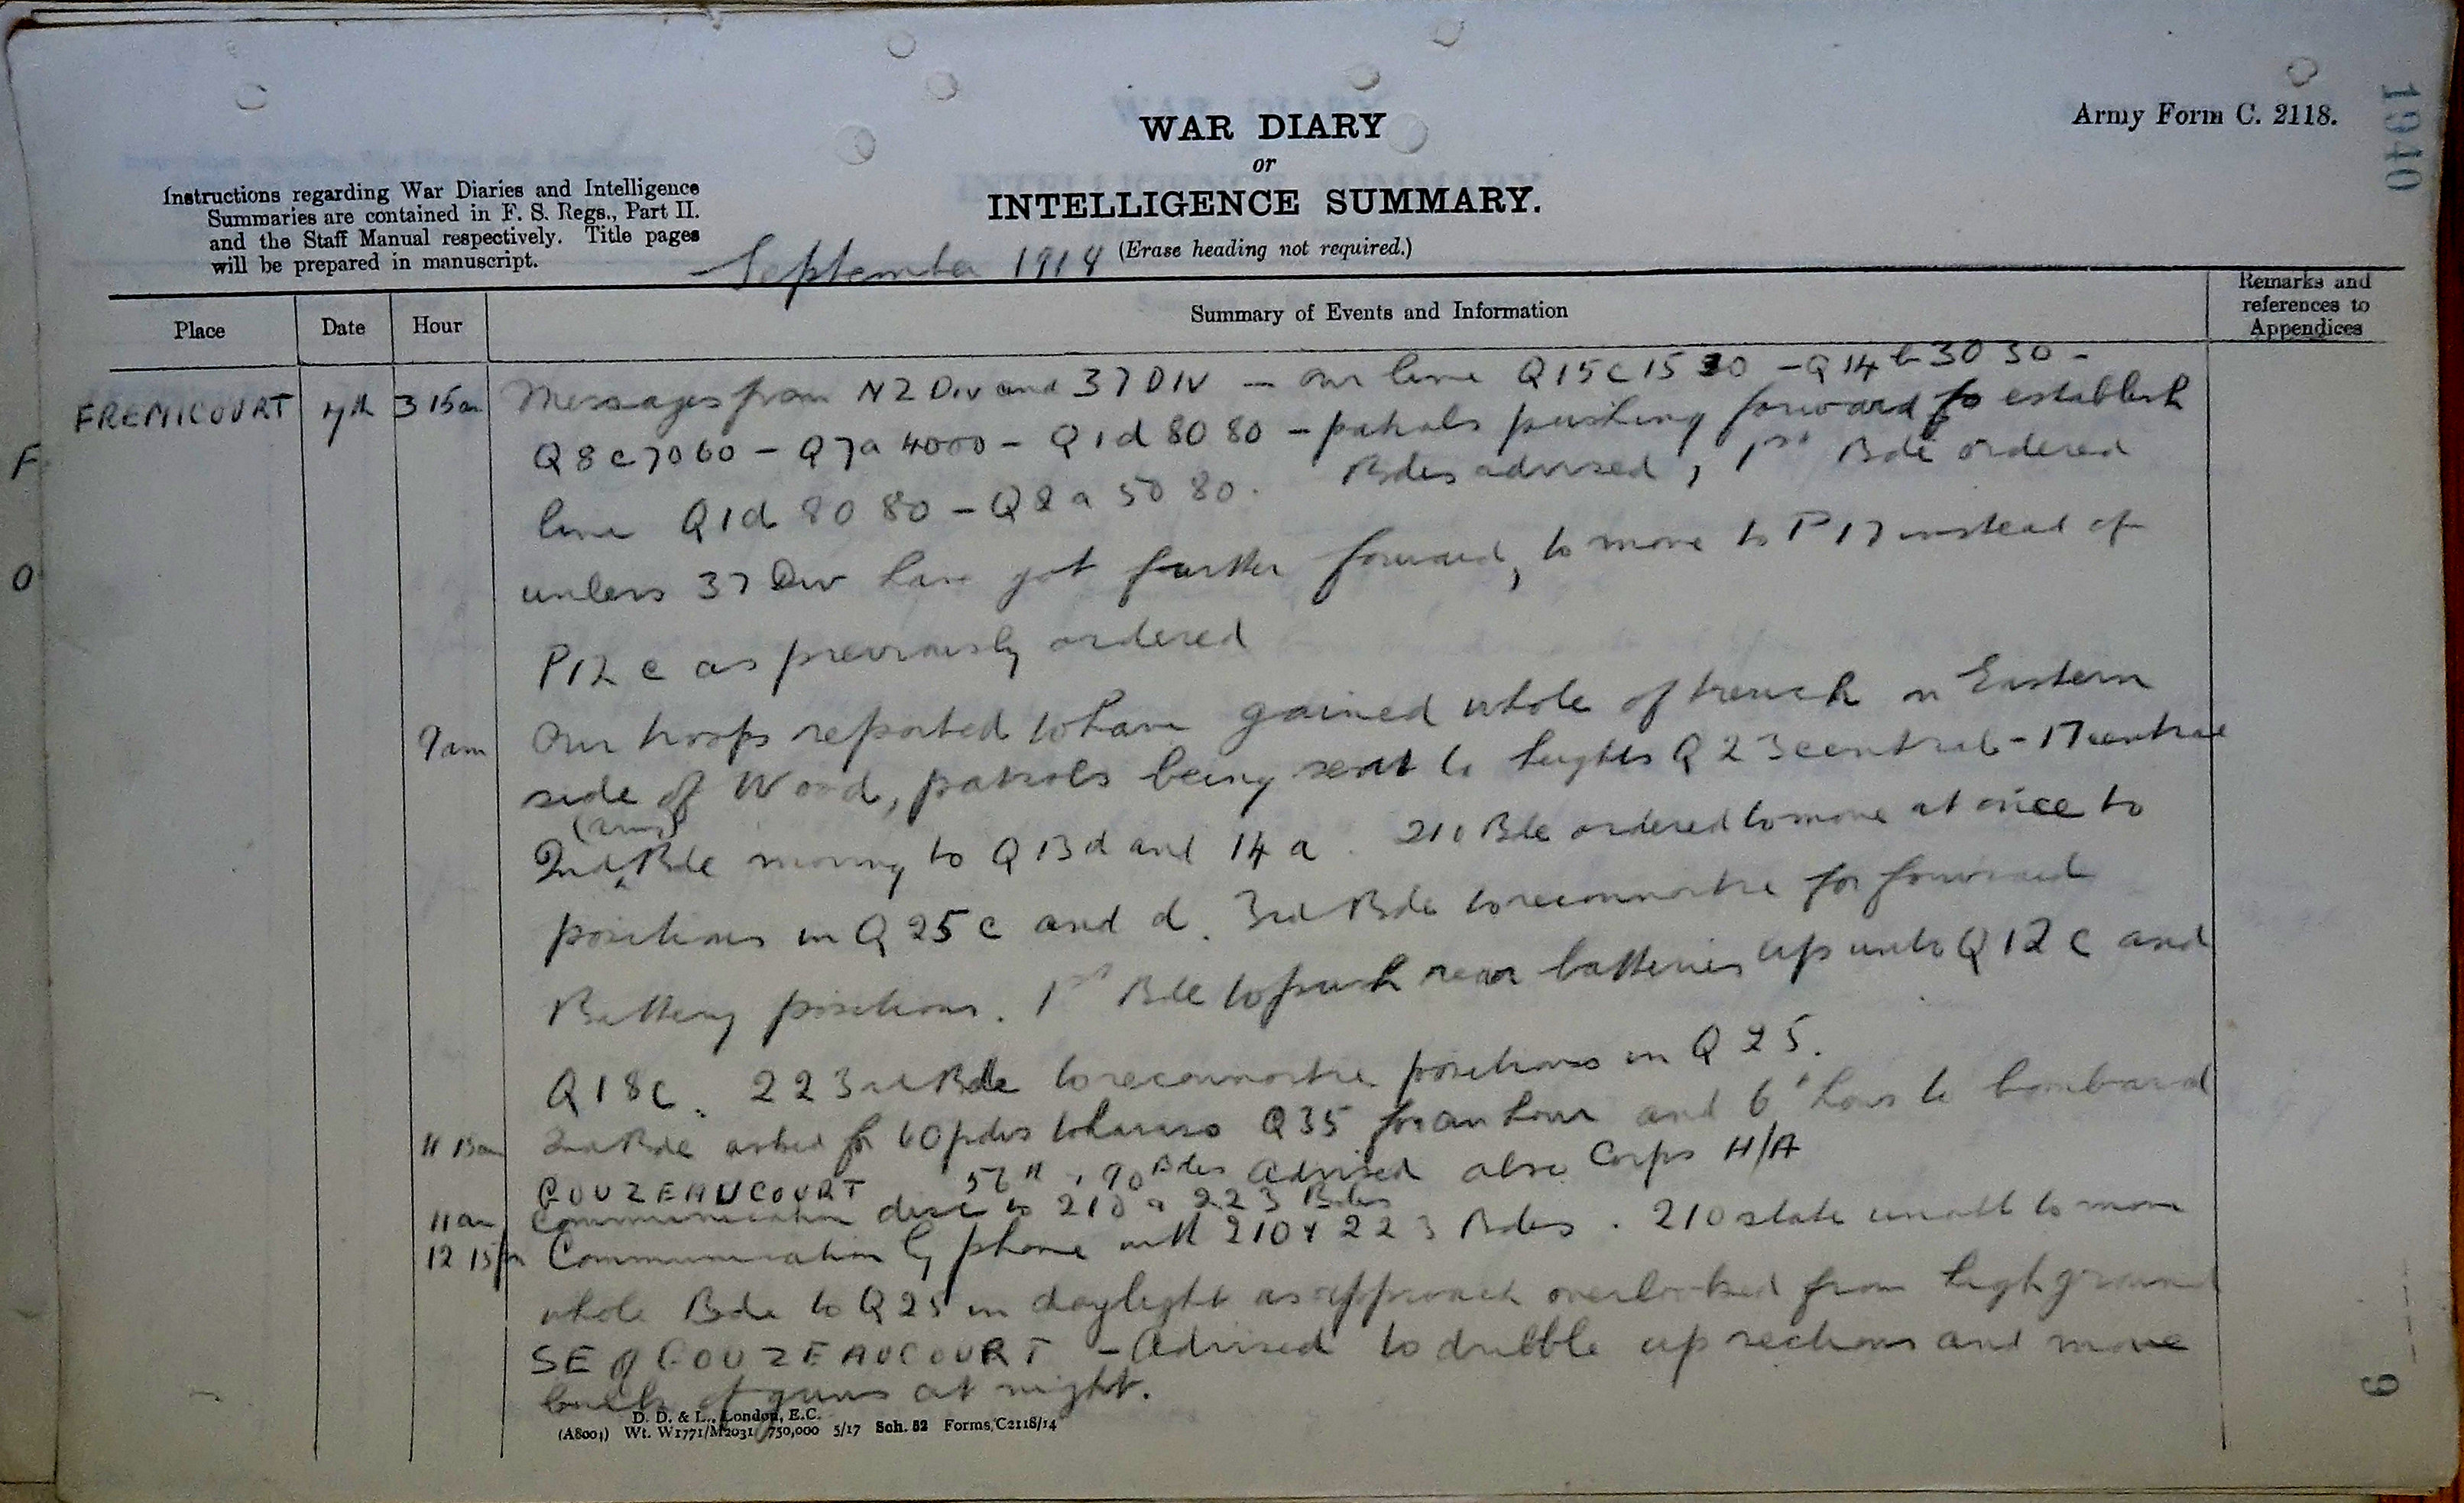 Army Form C. 2118.
1940
WAR DIARY
or
INTELLIGENCE SUMMARY.
(Erase heading not required.)
Instructions regarding War Diaries and Intelligence
Summaries are contained in F. S. Regs., Part II.
and the Staff Manual respectively. Title pages
will be prepared in manuscript.
September 1918
Place Date Hour Summary of Events and Information Remarks and
references to
Appendices
FREMICOURT 7th 3 15am Messages from NZ Div and 37 DIV — our line Q15c15 30 - Q14b30 30 -
Q8c7060 - Q7a4000 - Q1d8080 - patrols pushing forward to establish
line Q1d 80 80 - Q2a 50 80. Bdes advised, 1st Bde ordered
unless 37 Div have got further forward, to move to P17 instead of
P12c as previously ordered
9am Our troops reported to have gained whole of trench on Eastern
side of Wood, patrols being sent to heights Q23central - 17central
2nd (army) Bde moving to Q13d and 14a. 210 Bde ordered to move at once to
positions in Q25c and d. 3rd Bde to reconnoitre for forward
Battery positions. 1st Bde to push rear batteries up into Q12c and
Q18c. 223rd Bde to reconnoitre positions in Q25.
11 15am 2nd Bde asked for 60pdrs to harass Q35 for an hour and 6" hows to bombard
GOUZEAUCOURT 56th, 90 Bdes advised also Corps H/A
11am Communication disc to 210 & 223 Bdes
12 15pm Communication by phone with 210 & 223 Bdes. 210 state unable to move
whole Bde to Q25 in daylight as approach overlooked from high ground
SE of GOUZEAUCOURT - Advised to dribble up sections and move
bulk of guns at night.
D. D. & L., London, E.C.
(A8001) Wt. W1771/M2031 750,000 5/17 Sch. 52 Forms/C2118/14
9
F
O